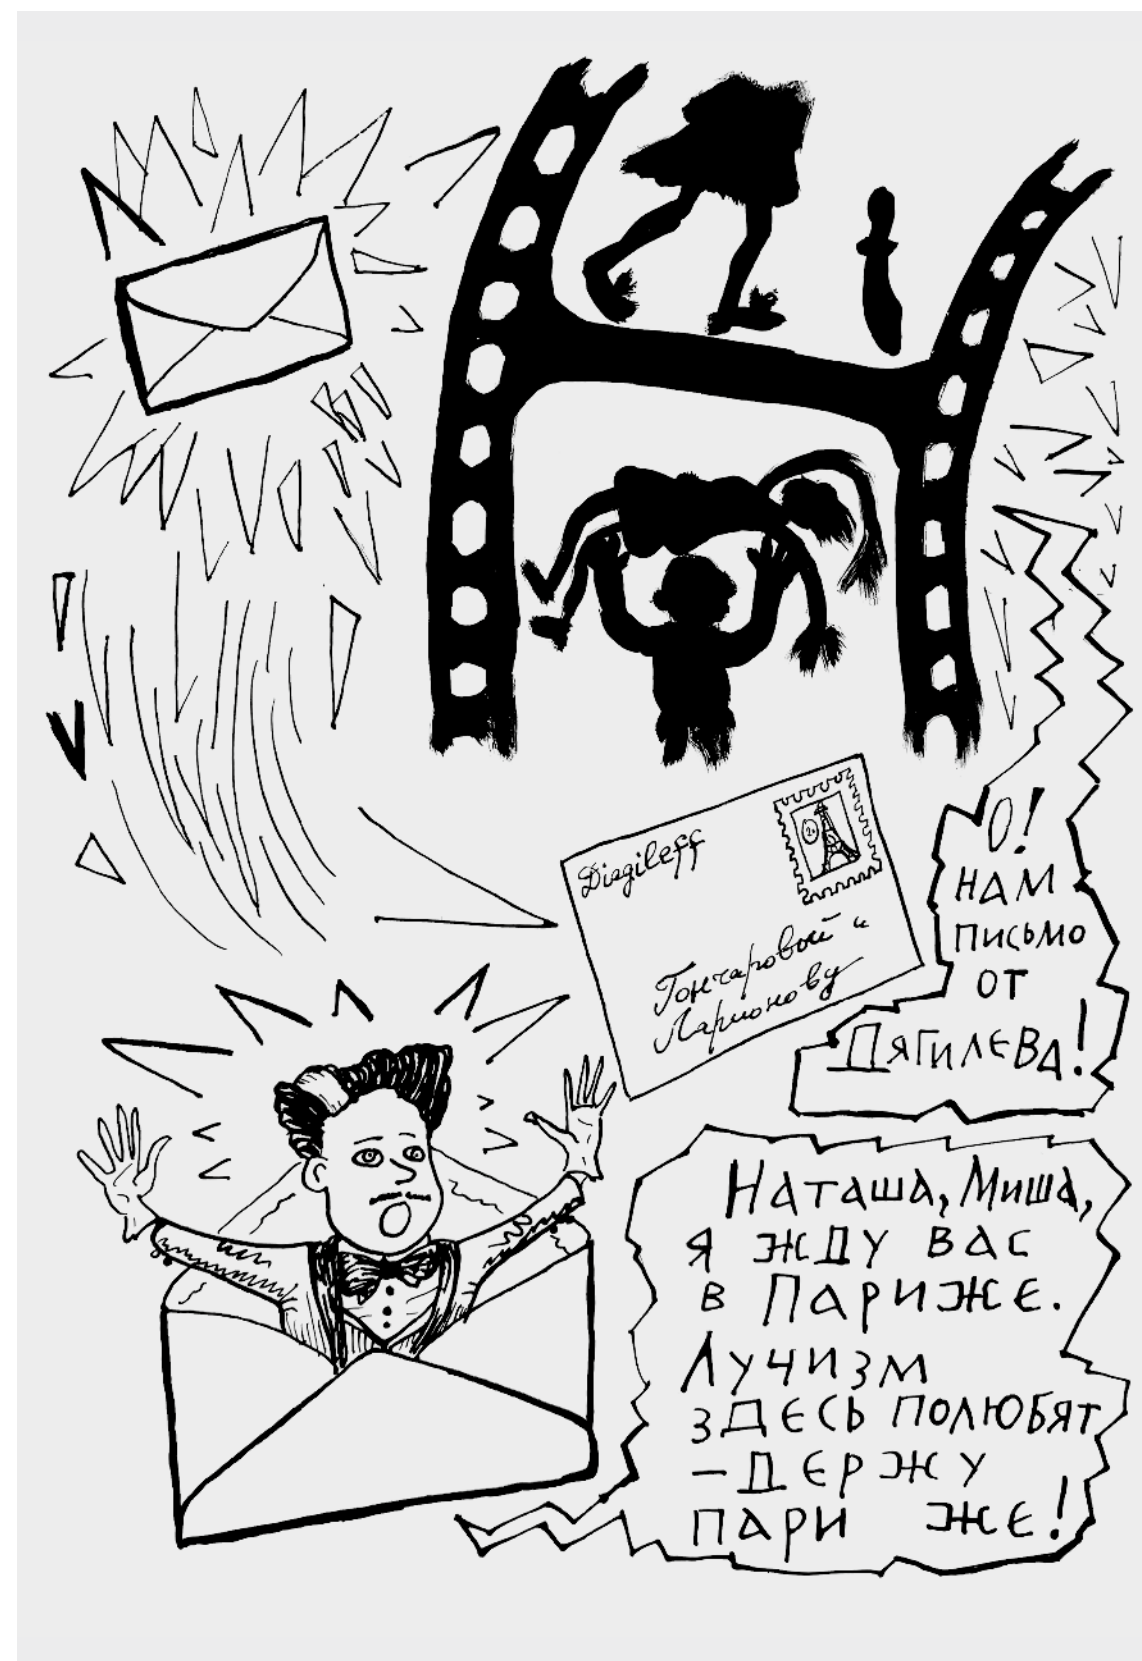 Diagileff
Гончаровой и
Ларионову
О!
НАМ
ПИСЬМО
ОТ
ДЯГИЛЕВА!
НАТАША, МИША,
Я ЖДУ ВАС
В ПАРИЖЕ.
ЛУЧИЗМ
ЗДЕСЬ ПОЛЮБЯТ
– ДЕРЖУ
ПАРИ ЖЕ!